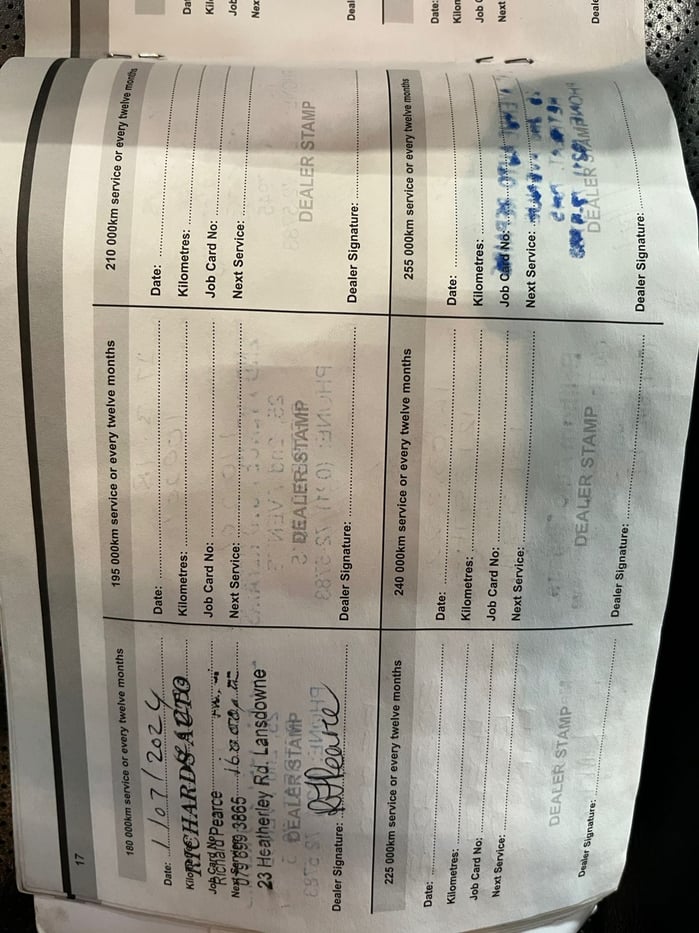 17
180 000km service or every twelve months
Date: 11/07/2024
RICHARDS AUTO
Richard Pearce
079 699 3865
23 Heatherley Rd. Lansdowne
DEALER STAMP
Dealer Signature: RPearce
195 000km service or every twelve months
Date:
Kilometres:
Job Card No:
Next Service:
DEALER STAMP
Dealer Signature:
210 000km service or every twelve months
Date:
Kilometres:
Job Card No:
Next Service:
DEALER STAMP
Dealer Signature:
225 000km service or every twelve months
Date:
Kilometres:
Job Card No:
Next Service:
DEALER STAMP
Dealer Signature:
240 000km service or every twelve months
Date:
Kilometres:
Job Card No:
Next Service:
DEALER STAMP
Dealer Signature:
255 000km service or every twelve months
Date:
Kilometres:
Job Card No:
Next Service:
DEALER STAMP
Dealer Signature: